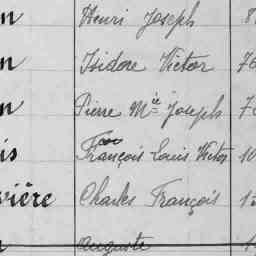 n Henri Joseph 8
n Isidore Victor 76
n Pierre Mie Joseph 7
is François Louis Victor 10
vière Charles François 15
Auguste 1